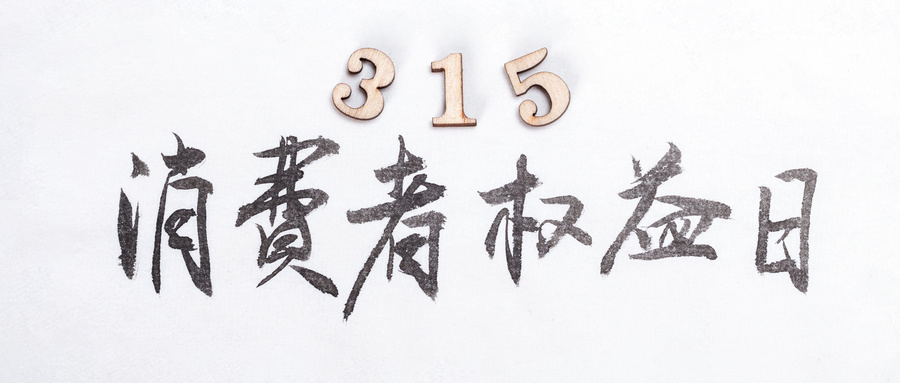 315
消費者权益日